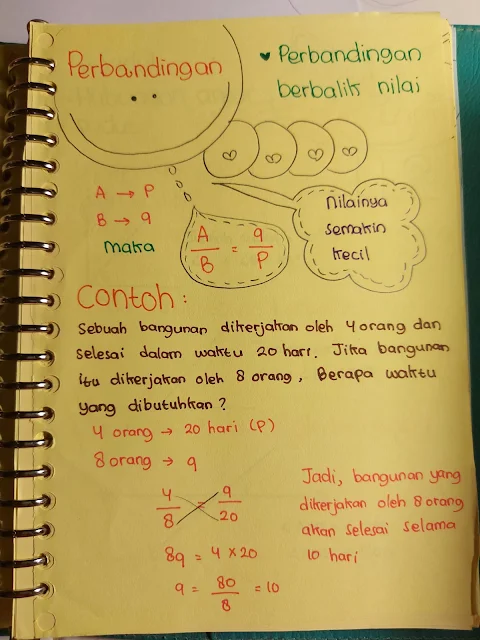 Perbandingan
♥ Perbandingan
berbalik nilai
A → P
B → q
maka
A/B = q/P
Nilainya
semakin
kecil
Contoh :
Sebuah bangunan dikerjakan oleh 4 orang dan
selesai dalam waktu 20 hari. Jika bangunan
itu dikerjakan oleh 8 orang, Berapa waktu
yang dibutuhkan ?
4 orang → 20 hari (P)
8 orang → q
4/8 = q/20
8q = 4 x 20
q = 80/8 = 10
Jadi, bangunan yang
dikerjakan oleh 8 orang
akan selesai selama
10 hari